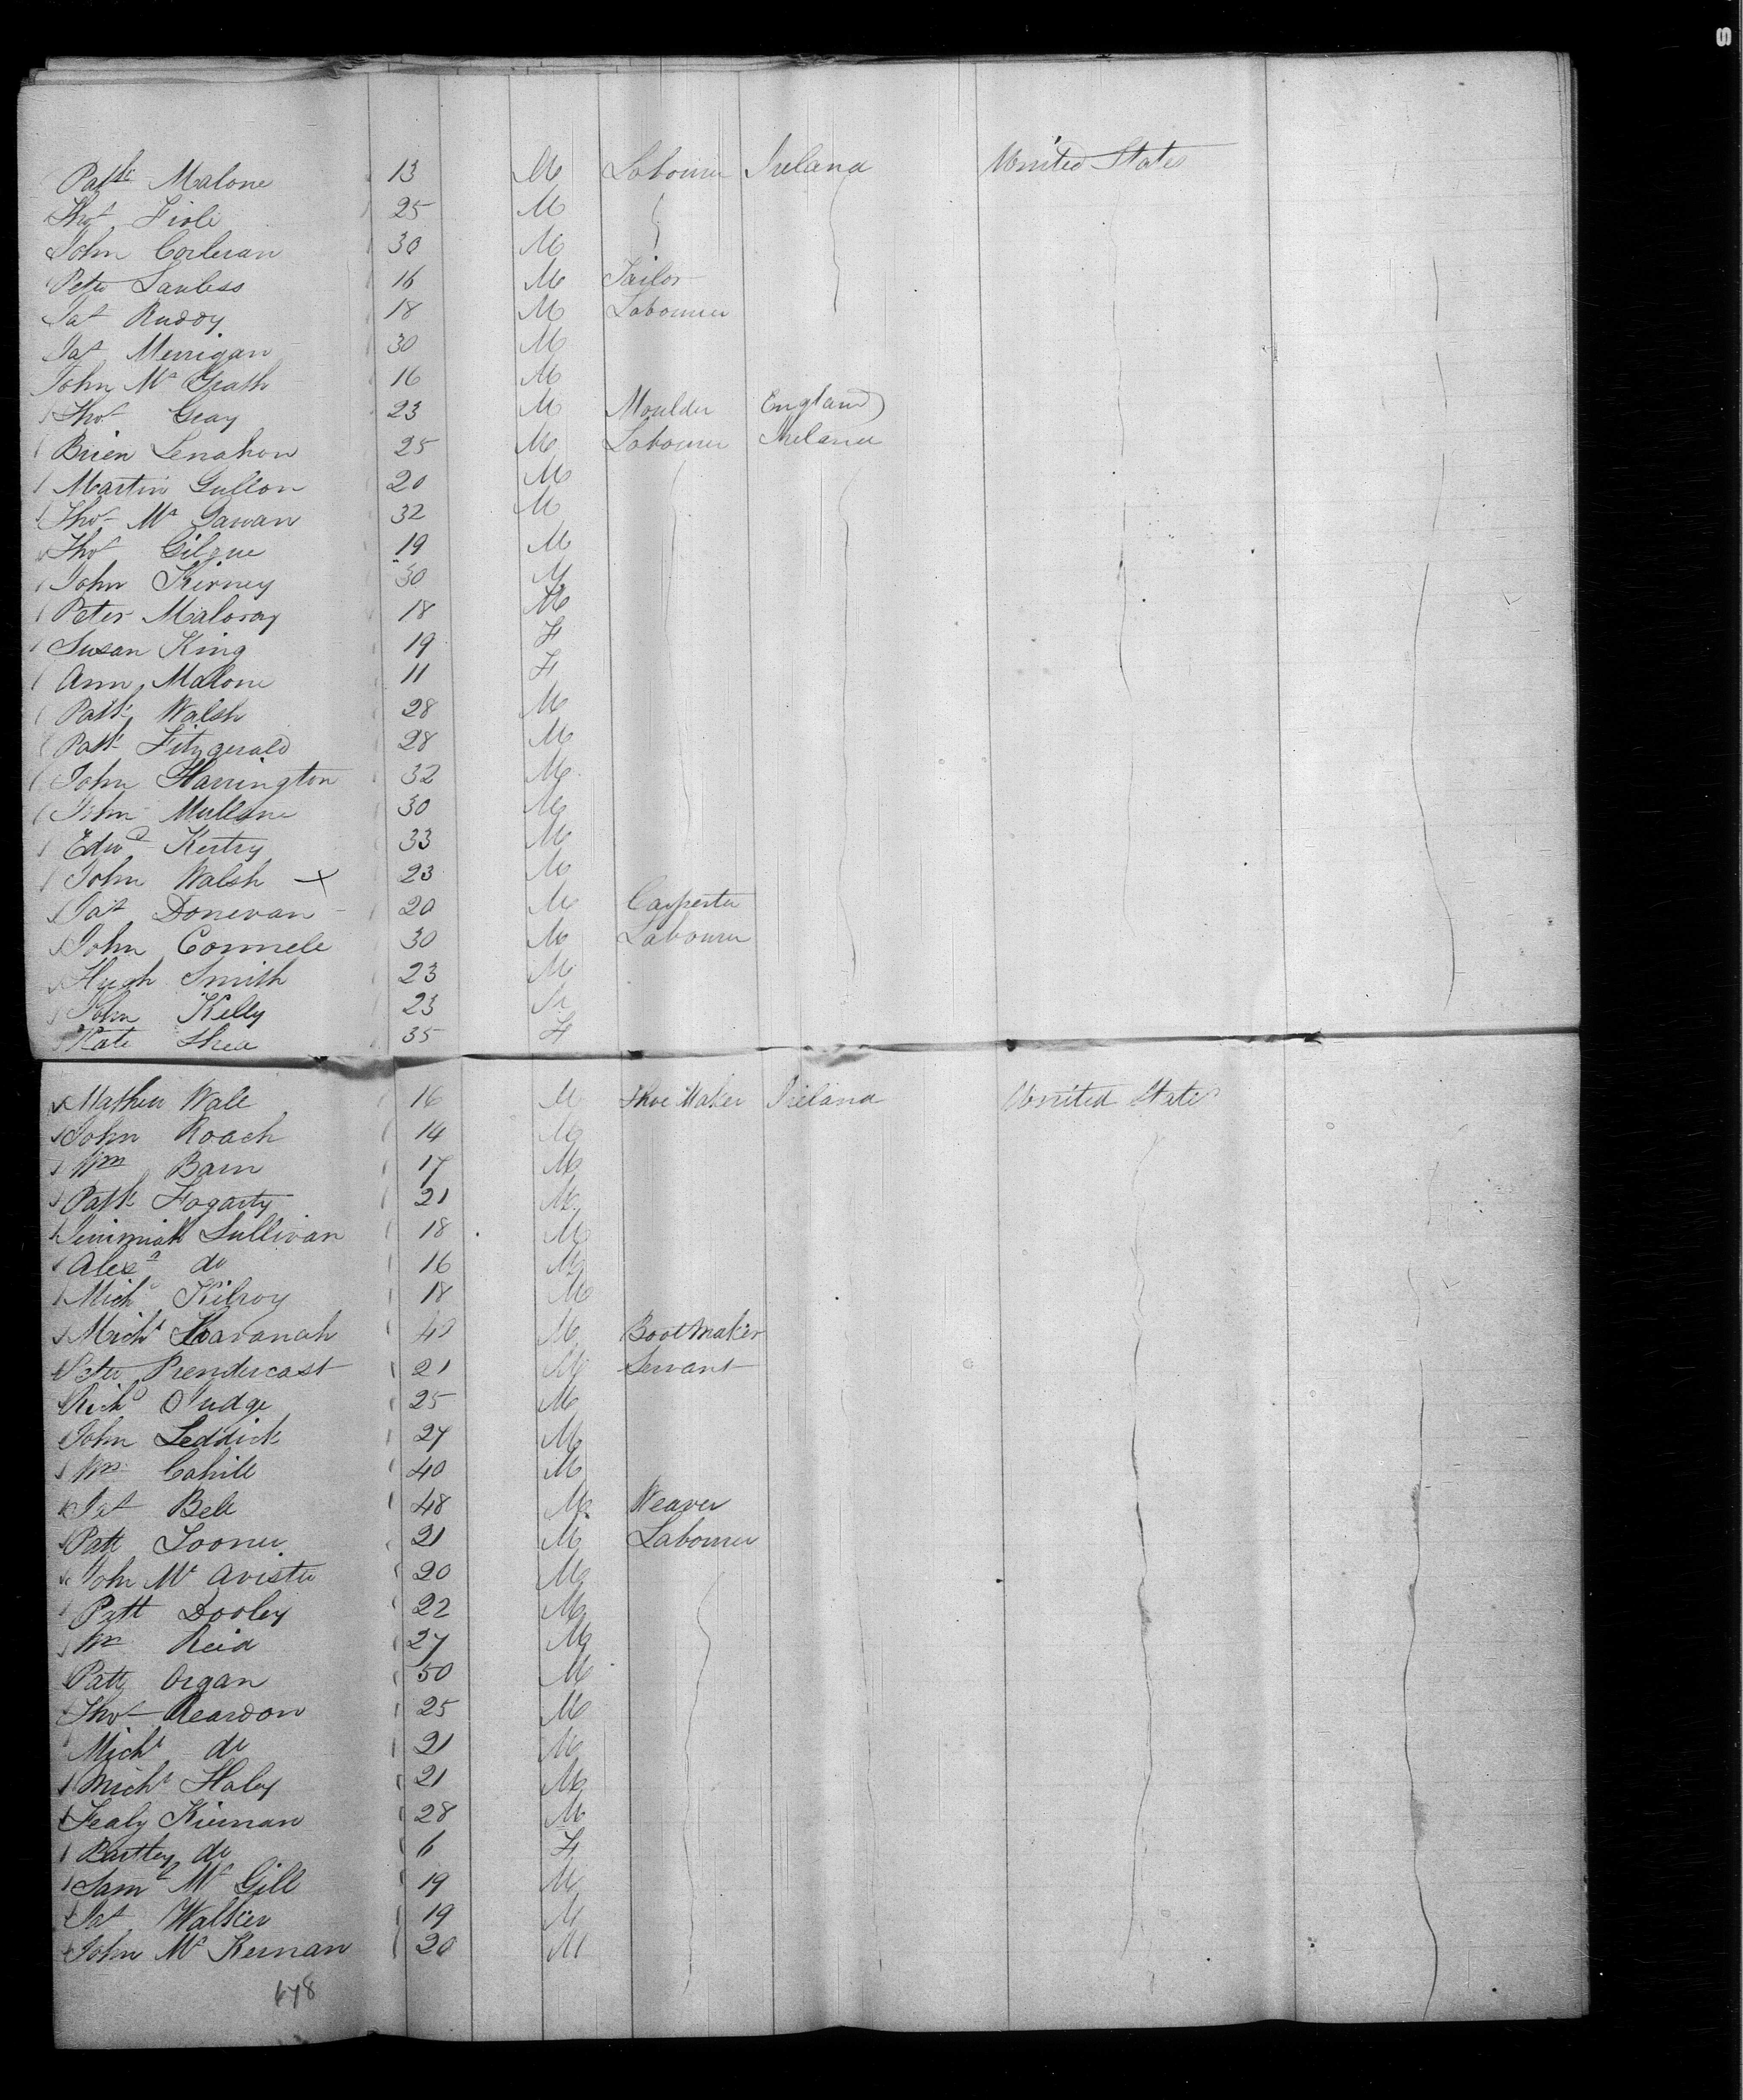 Patk Malone 13 M Labourer Ireland United States
Thos 25 M
John Corleran 30 M
Peter Lawless 16 M Tailor
Jas Ruddy 18 M Labourer
Jas Merrigan 30 M
John Mc Grath 16 M
Thos Geay 23 M Moulder England
Brien Lenahon 25 M Labourer Ireland
Martin Gullon 20 M
Thos Mc Gawan 32 M
Thos Gilgue 19 M
John Kirney 30 M
Peter Maloray 18 M
Susan King 19 F
Ann Malone 11 F
Patk Walsh 28 M
Patk Fitzgerald 28 M
John Harrington 32 M
John Mullane 30 M
Edwd 33 M
John Walsh x 23 M
Jas Donevan 20 M Carpenter
John Connell 30 M Labourer
Hugh Smith 23 M
John Kelly 23
Kate Shea 35 F
Mathew Wall 16 M Shoe Maker Ireland United States
John Roach 14 M
Wm Barn 17 M
Patk Fogarty 21 M
Jerimiah Sullivan 18 M
Alexr do 16 M
Michl Kilroy 18 M
Michl Kavanah 40 M Bootmaker
Peter Prendercast 21 M Servant
Richd Judge 25 M
John Leddick 27 M
Wm Cahill 40 M
Jas Bell 48 M Weaver
Patt 21 M Labourer
John Mc Avister 20 M
Patt Dooley 22 M
Wm Reid 27 M
Patt Organ 50 M
Thos Reardon 25 M
Michl do 21 M
Michl Haley 21 M
Kiernan 28 M
Bartley do 6 F
Saml Mc Gill 19 M
Jas Walker 19 M
John Mc Kernan 20 M
678